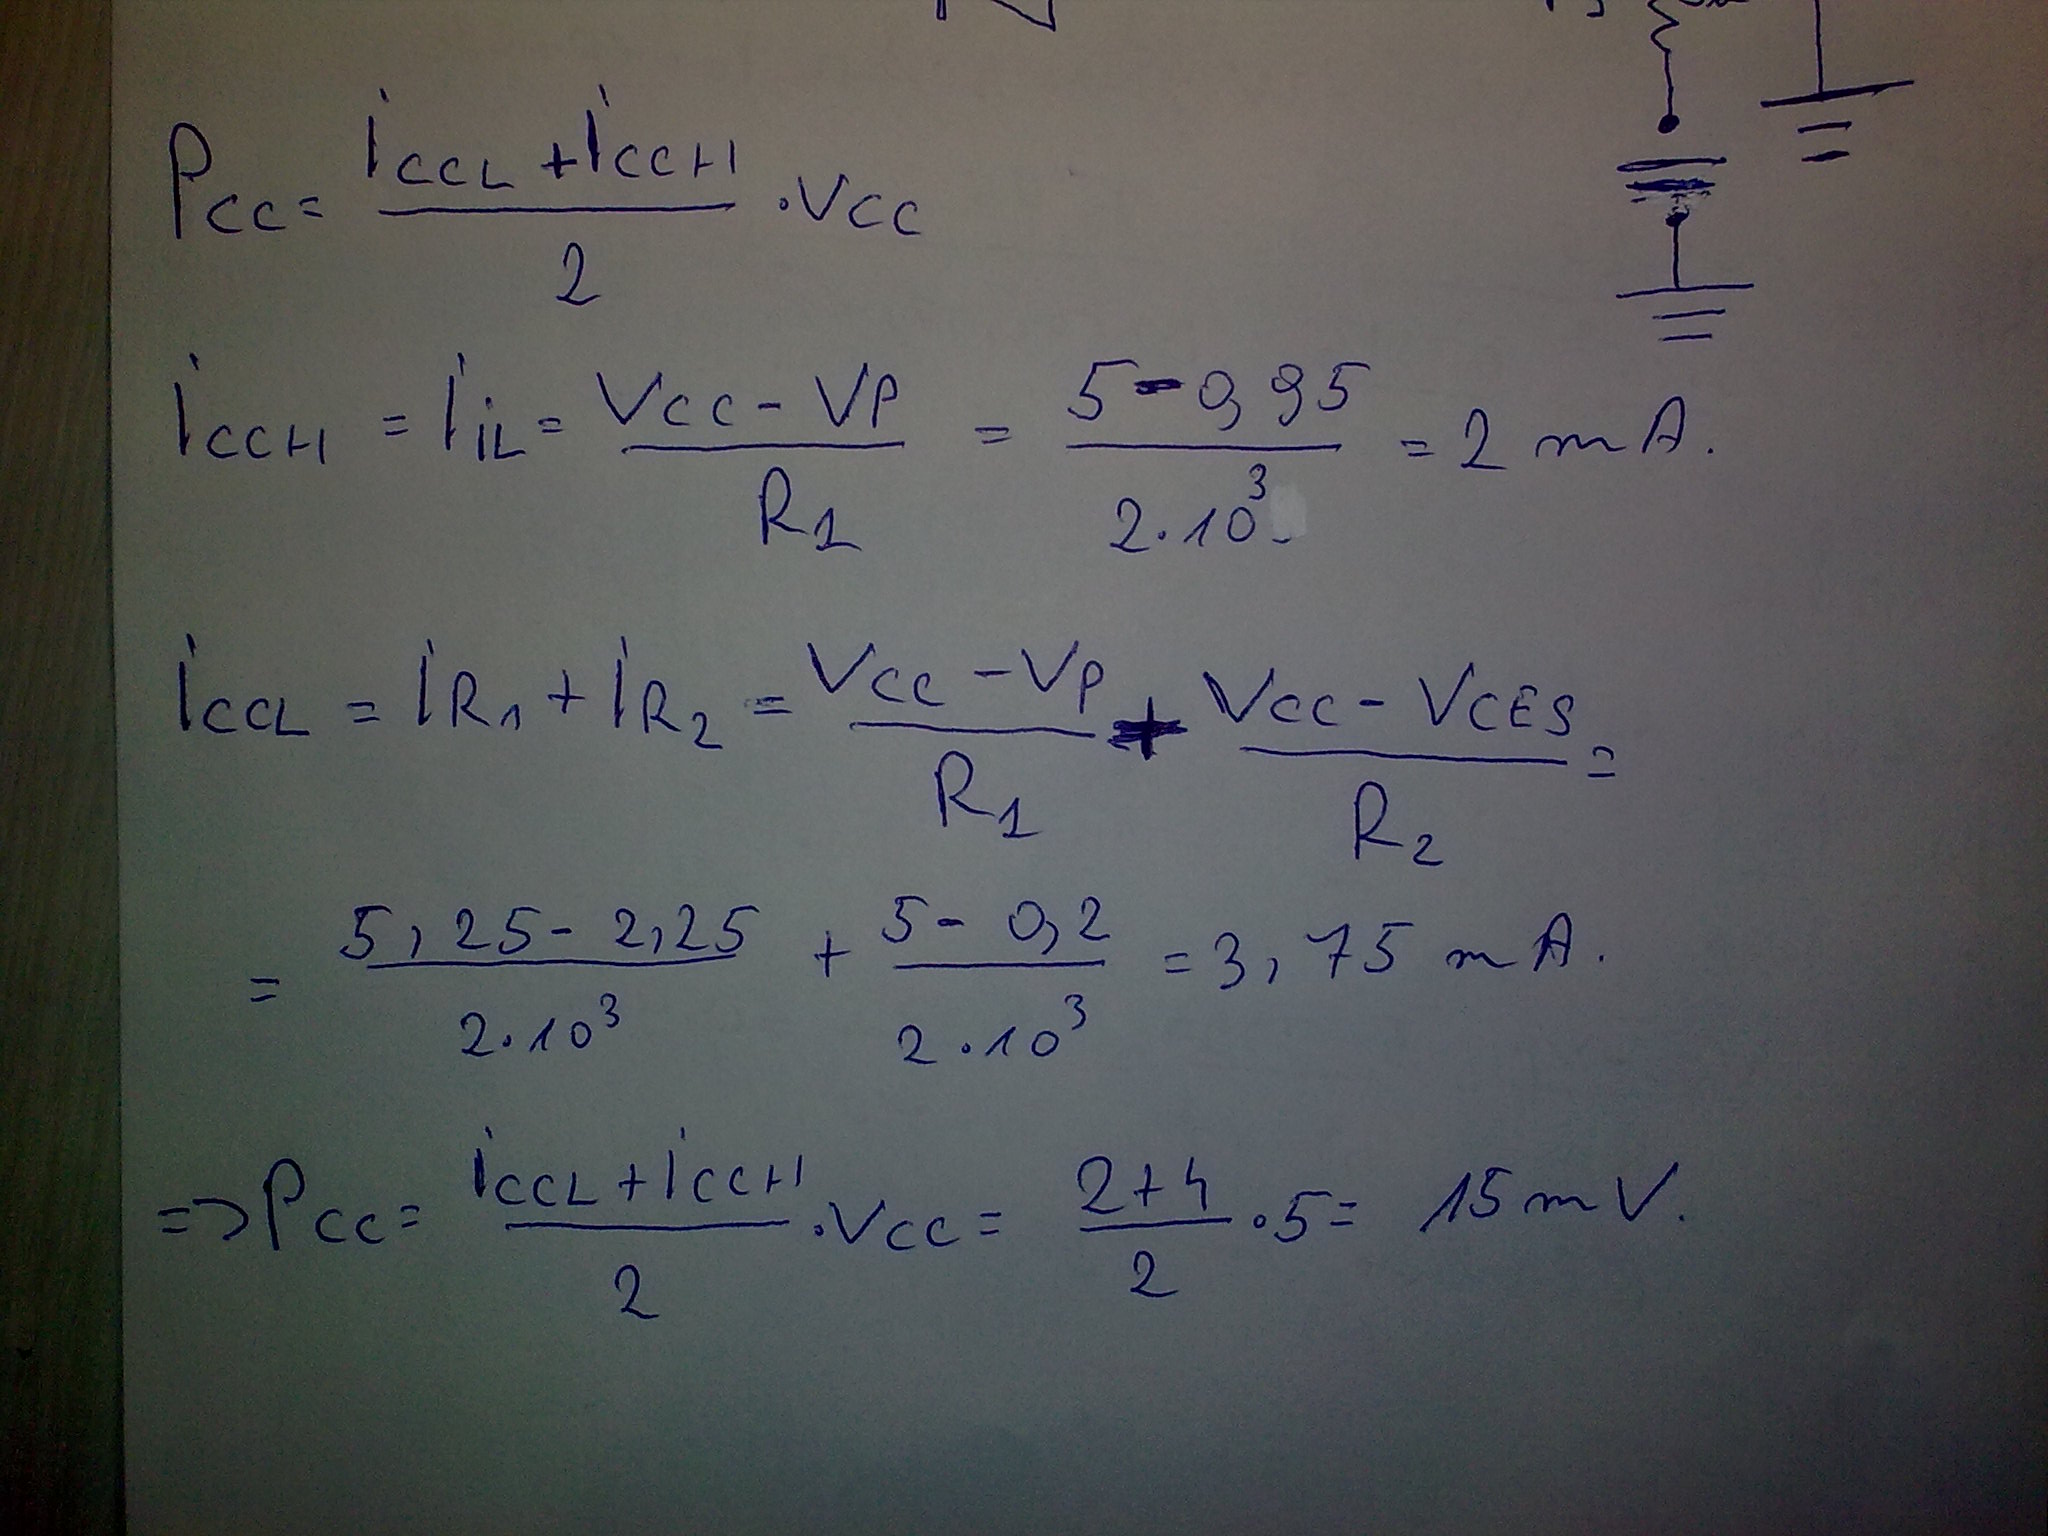 Pcc = (iCCL + iCCH)/2 · Vcc
iCCH = iiL = (Vcc - VP)/R1 = (5 - 0,95)/(2·10³) = 2 mA.
iCCL = iR1 + iR2 = (Vcc - VP)/R1 + (Vcc - VCES)/R2 =
= (5,25 - 2,25)/(2·10³) + (5 - 0,2)/(2·10³) = 3,75 mA.
=> Pcc = (iCCL + iCCH)/2 · Vcc = (2+4)/2 · 5 = 15 mV.